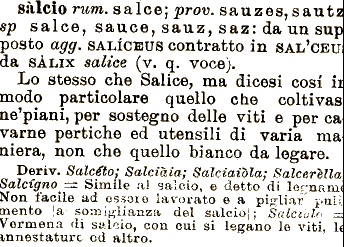 sàlcio rum. salce; prov. sauzes, sautz
sp salce, sauce, sauz, saz: da un sup
posto agg. SALÍCEUS contratto in SAL'CEU
da SÀLIX salice (v. q. voce).
Lo stesso che Salice, ma dicesi cosí i
modo particolare quello che coltivas
ne'piani, per sostegno delle viti e per ca
varne pertiche ed utensili di varia ma
niera, non che quello bianco da legare.
Deriv. Salcéto; Salciàia; Salciaiòla; Salcerèlla
Salcígno = Simile al salcio, e detto di legname
Non facile ad essere lavorato e a pigliar puli
mento [a somiglianza del salcio]; Salciolo =
Vermena di salcio, con cui si legano le viti, le
annestature ed altro.